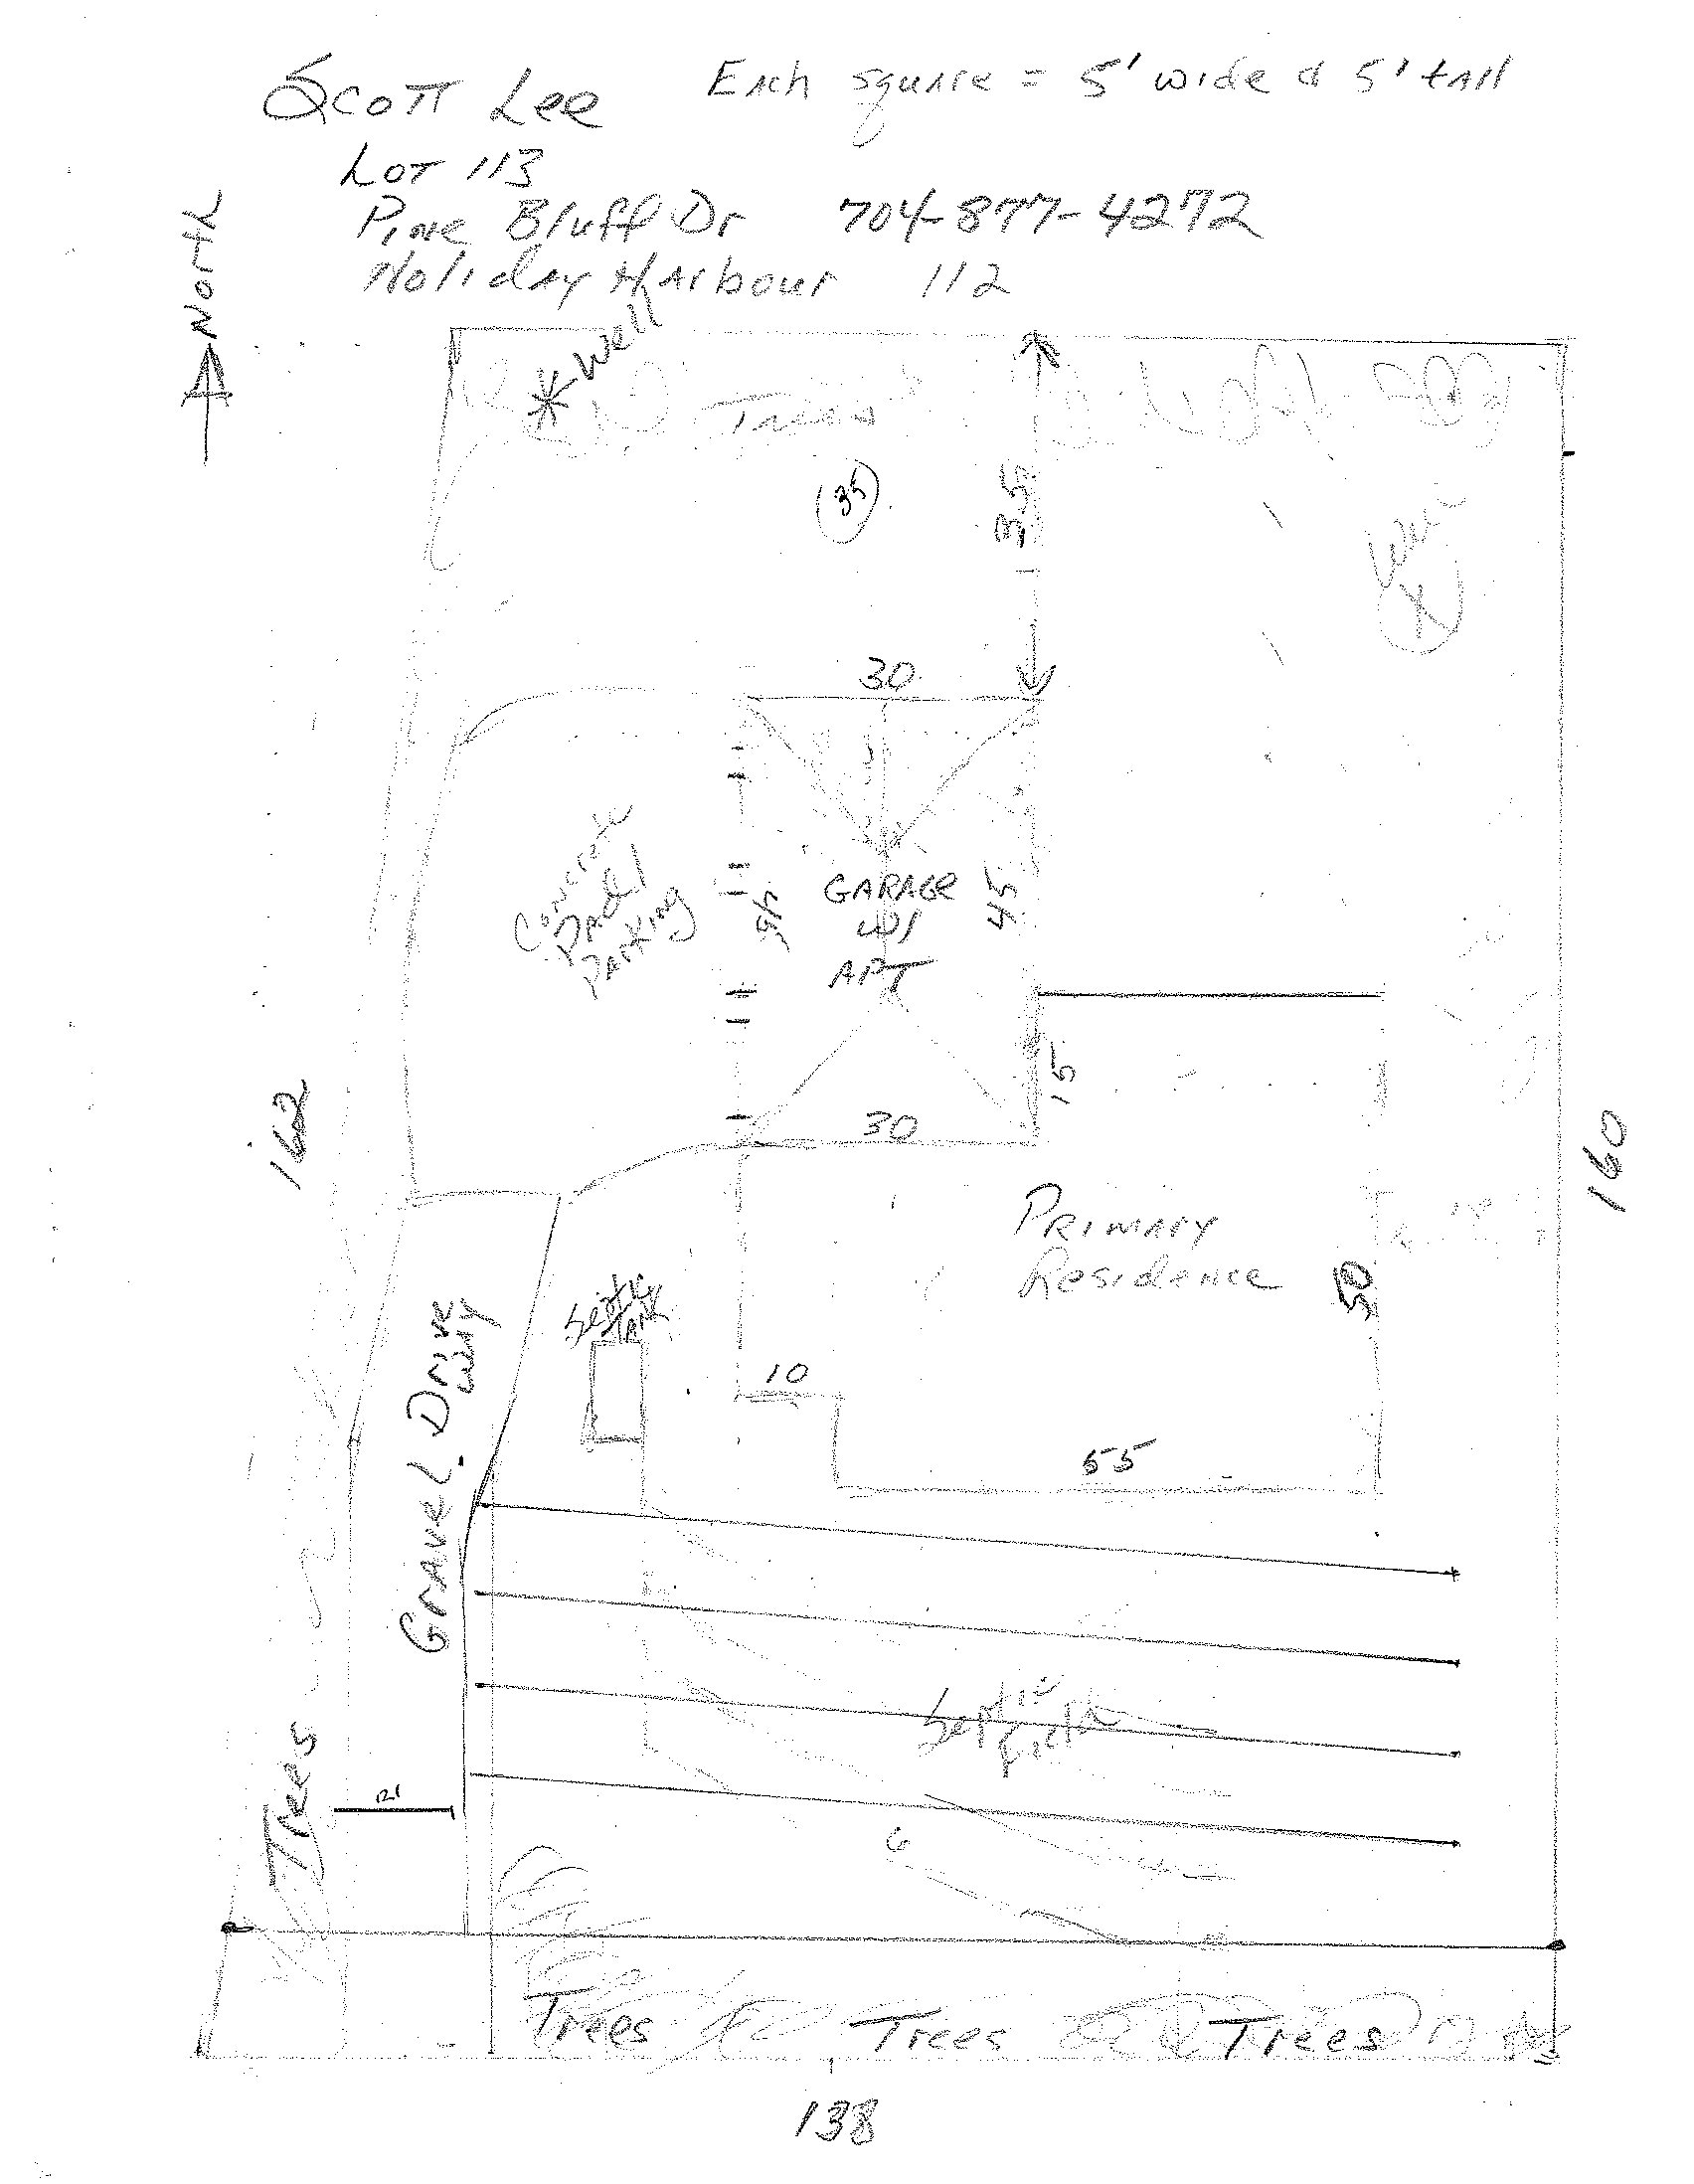 Scott Lee
Each square = 5' wide & 5' tall
Lot 113
Pine Bluff Dr 704-877-4272
Holiday Harbour 112
North
Well
Trees
35
35
Well
30
Concrete
Pad/
Parking
45
GARAGE
w/
APT
45
15
30
162
160
Primary
Residence
50
Septic
Tank
Gravel Drive
way
10
55
Septic
Field
Trees
12'
6
Trees Trees Trees
138